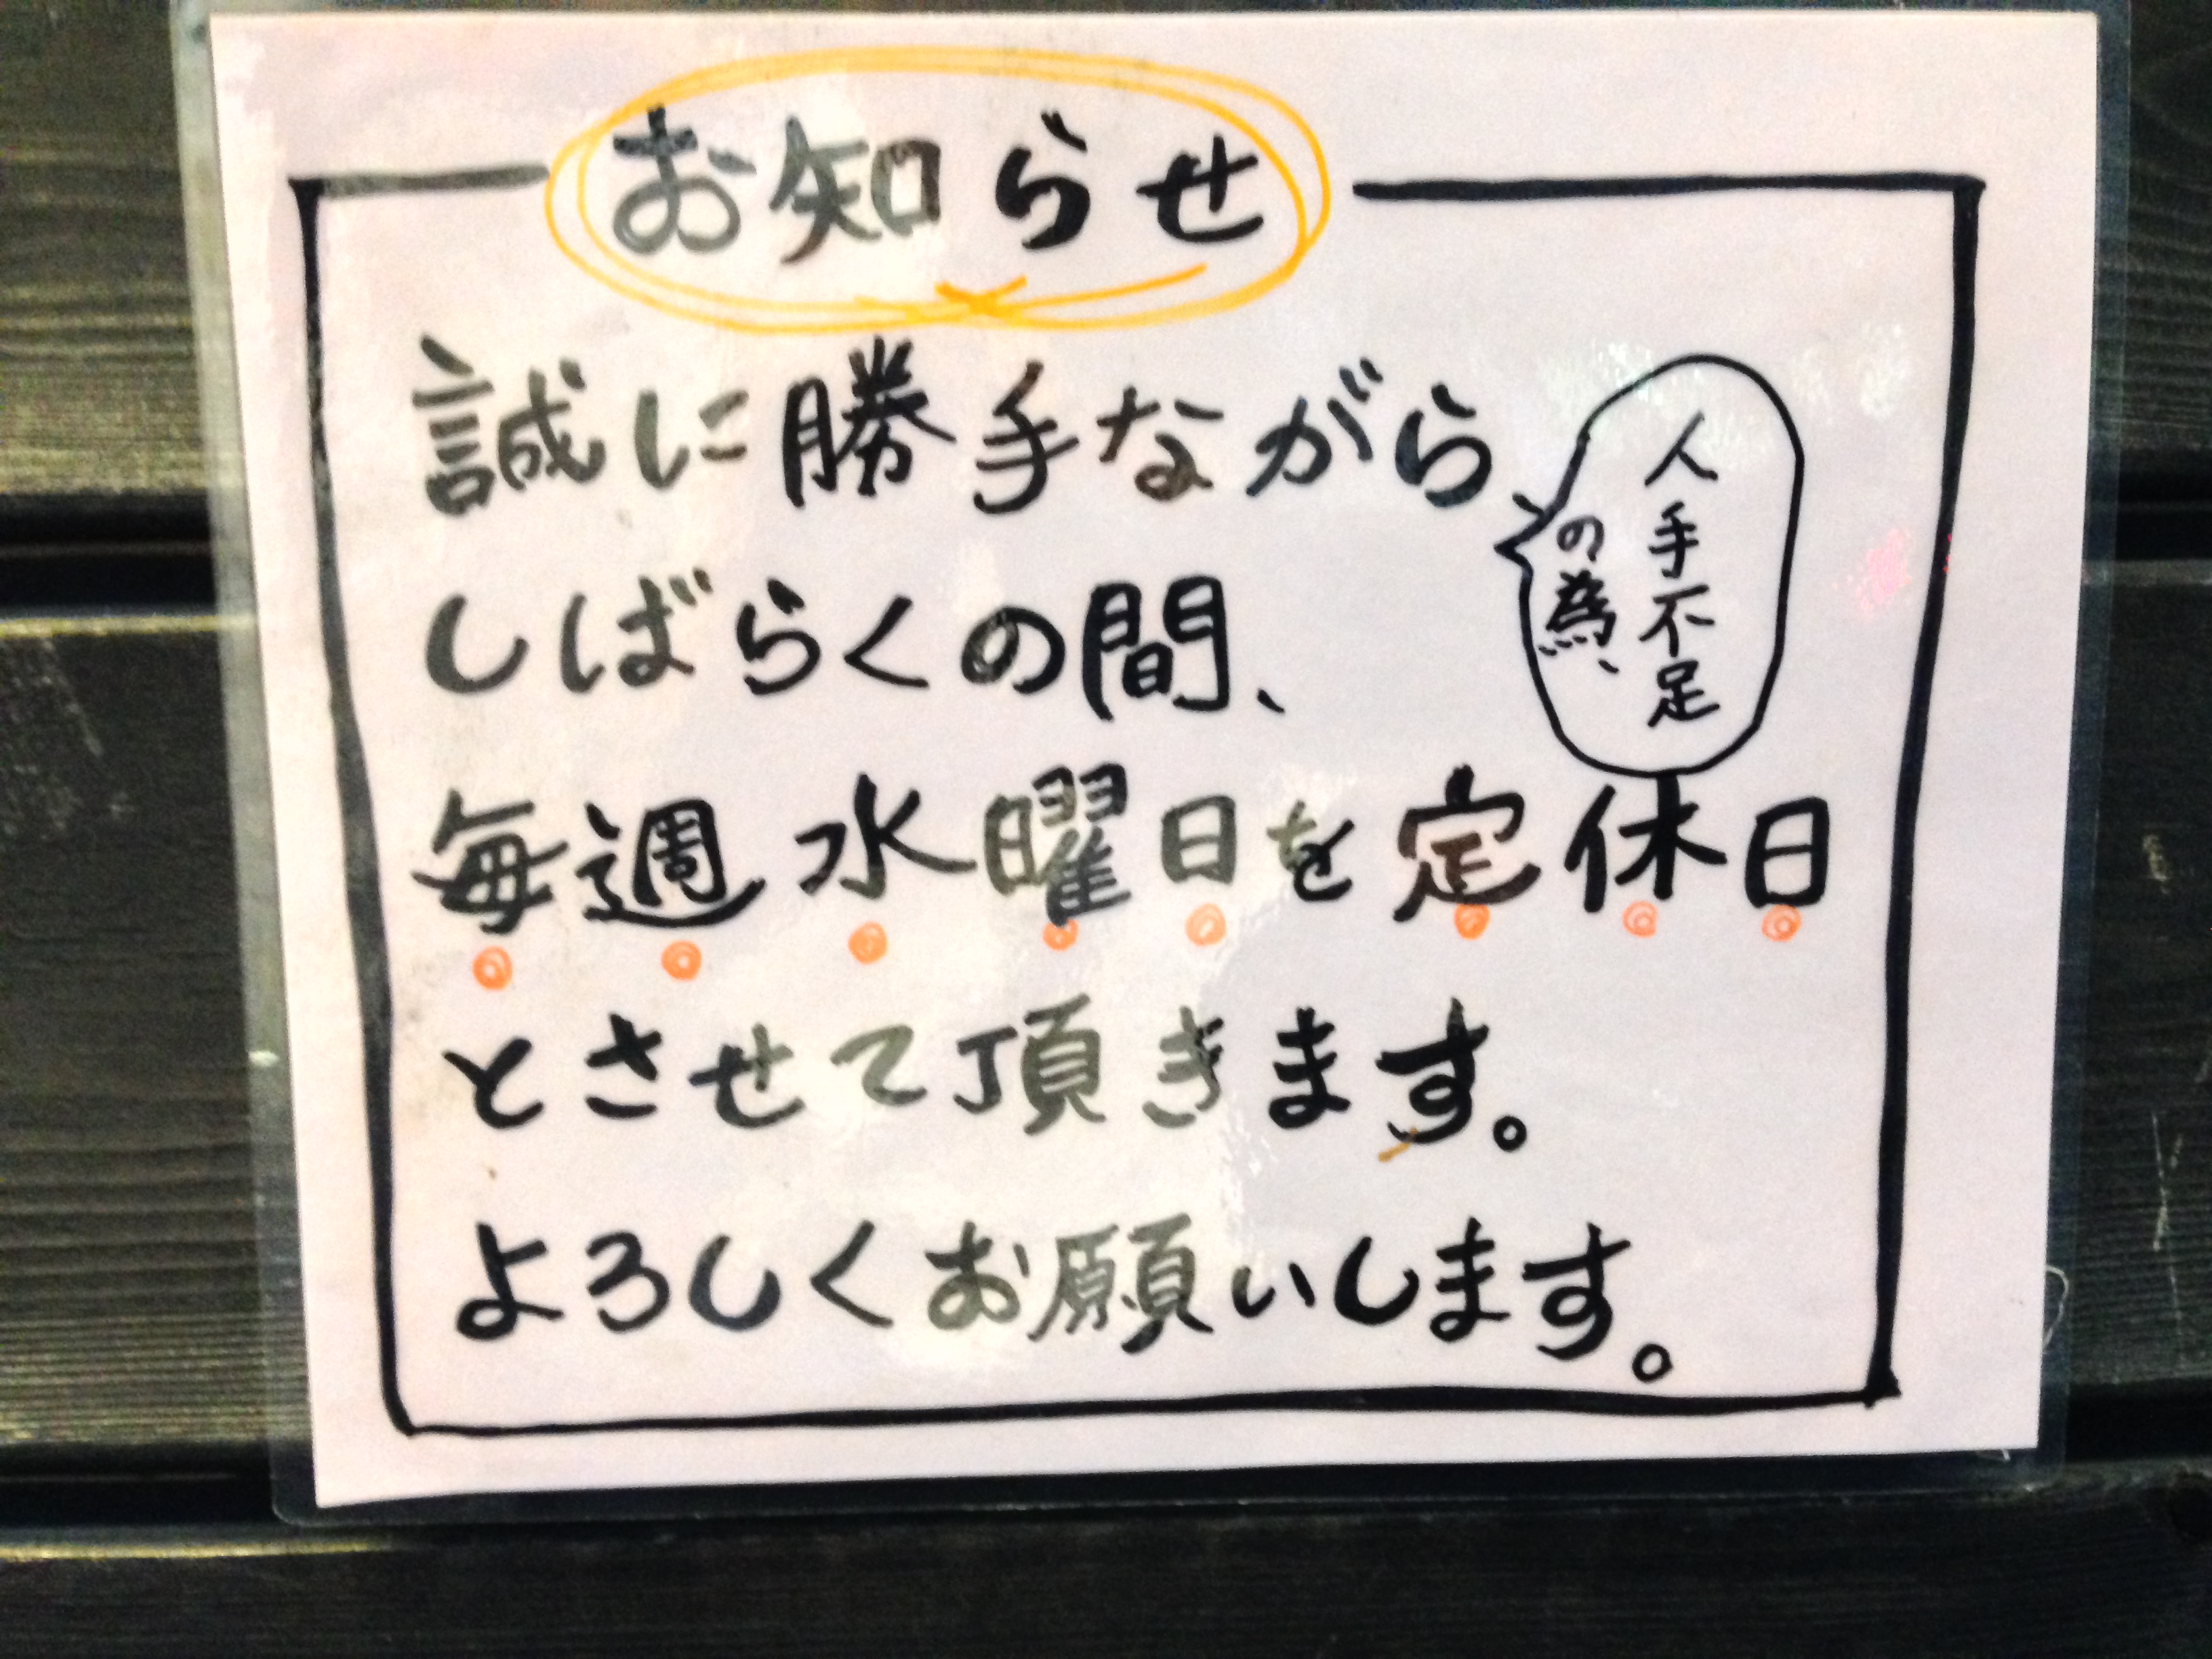 お知らせ
誠に勝手ながら
人手不足
の為、
しばらくの間、
毎週水曜日を定休日
とさせて頂きます。
よろしくお願いします。